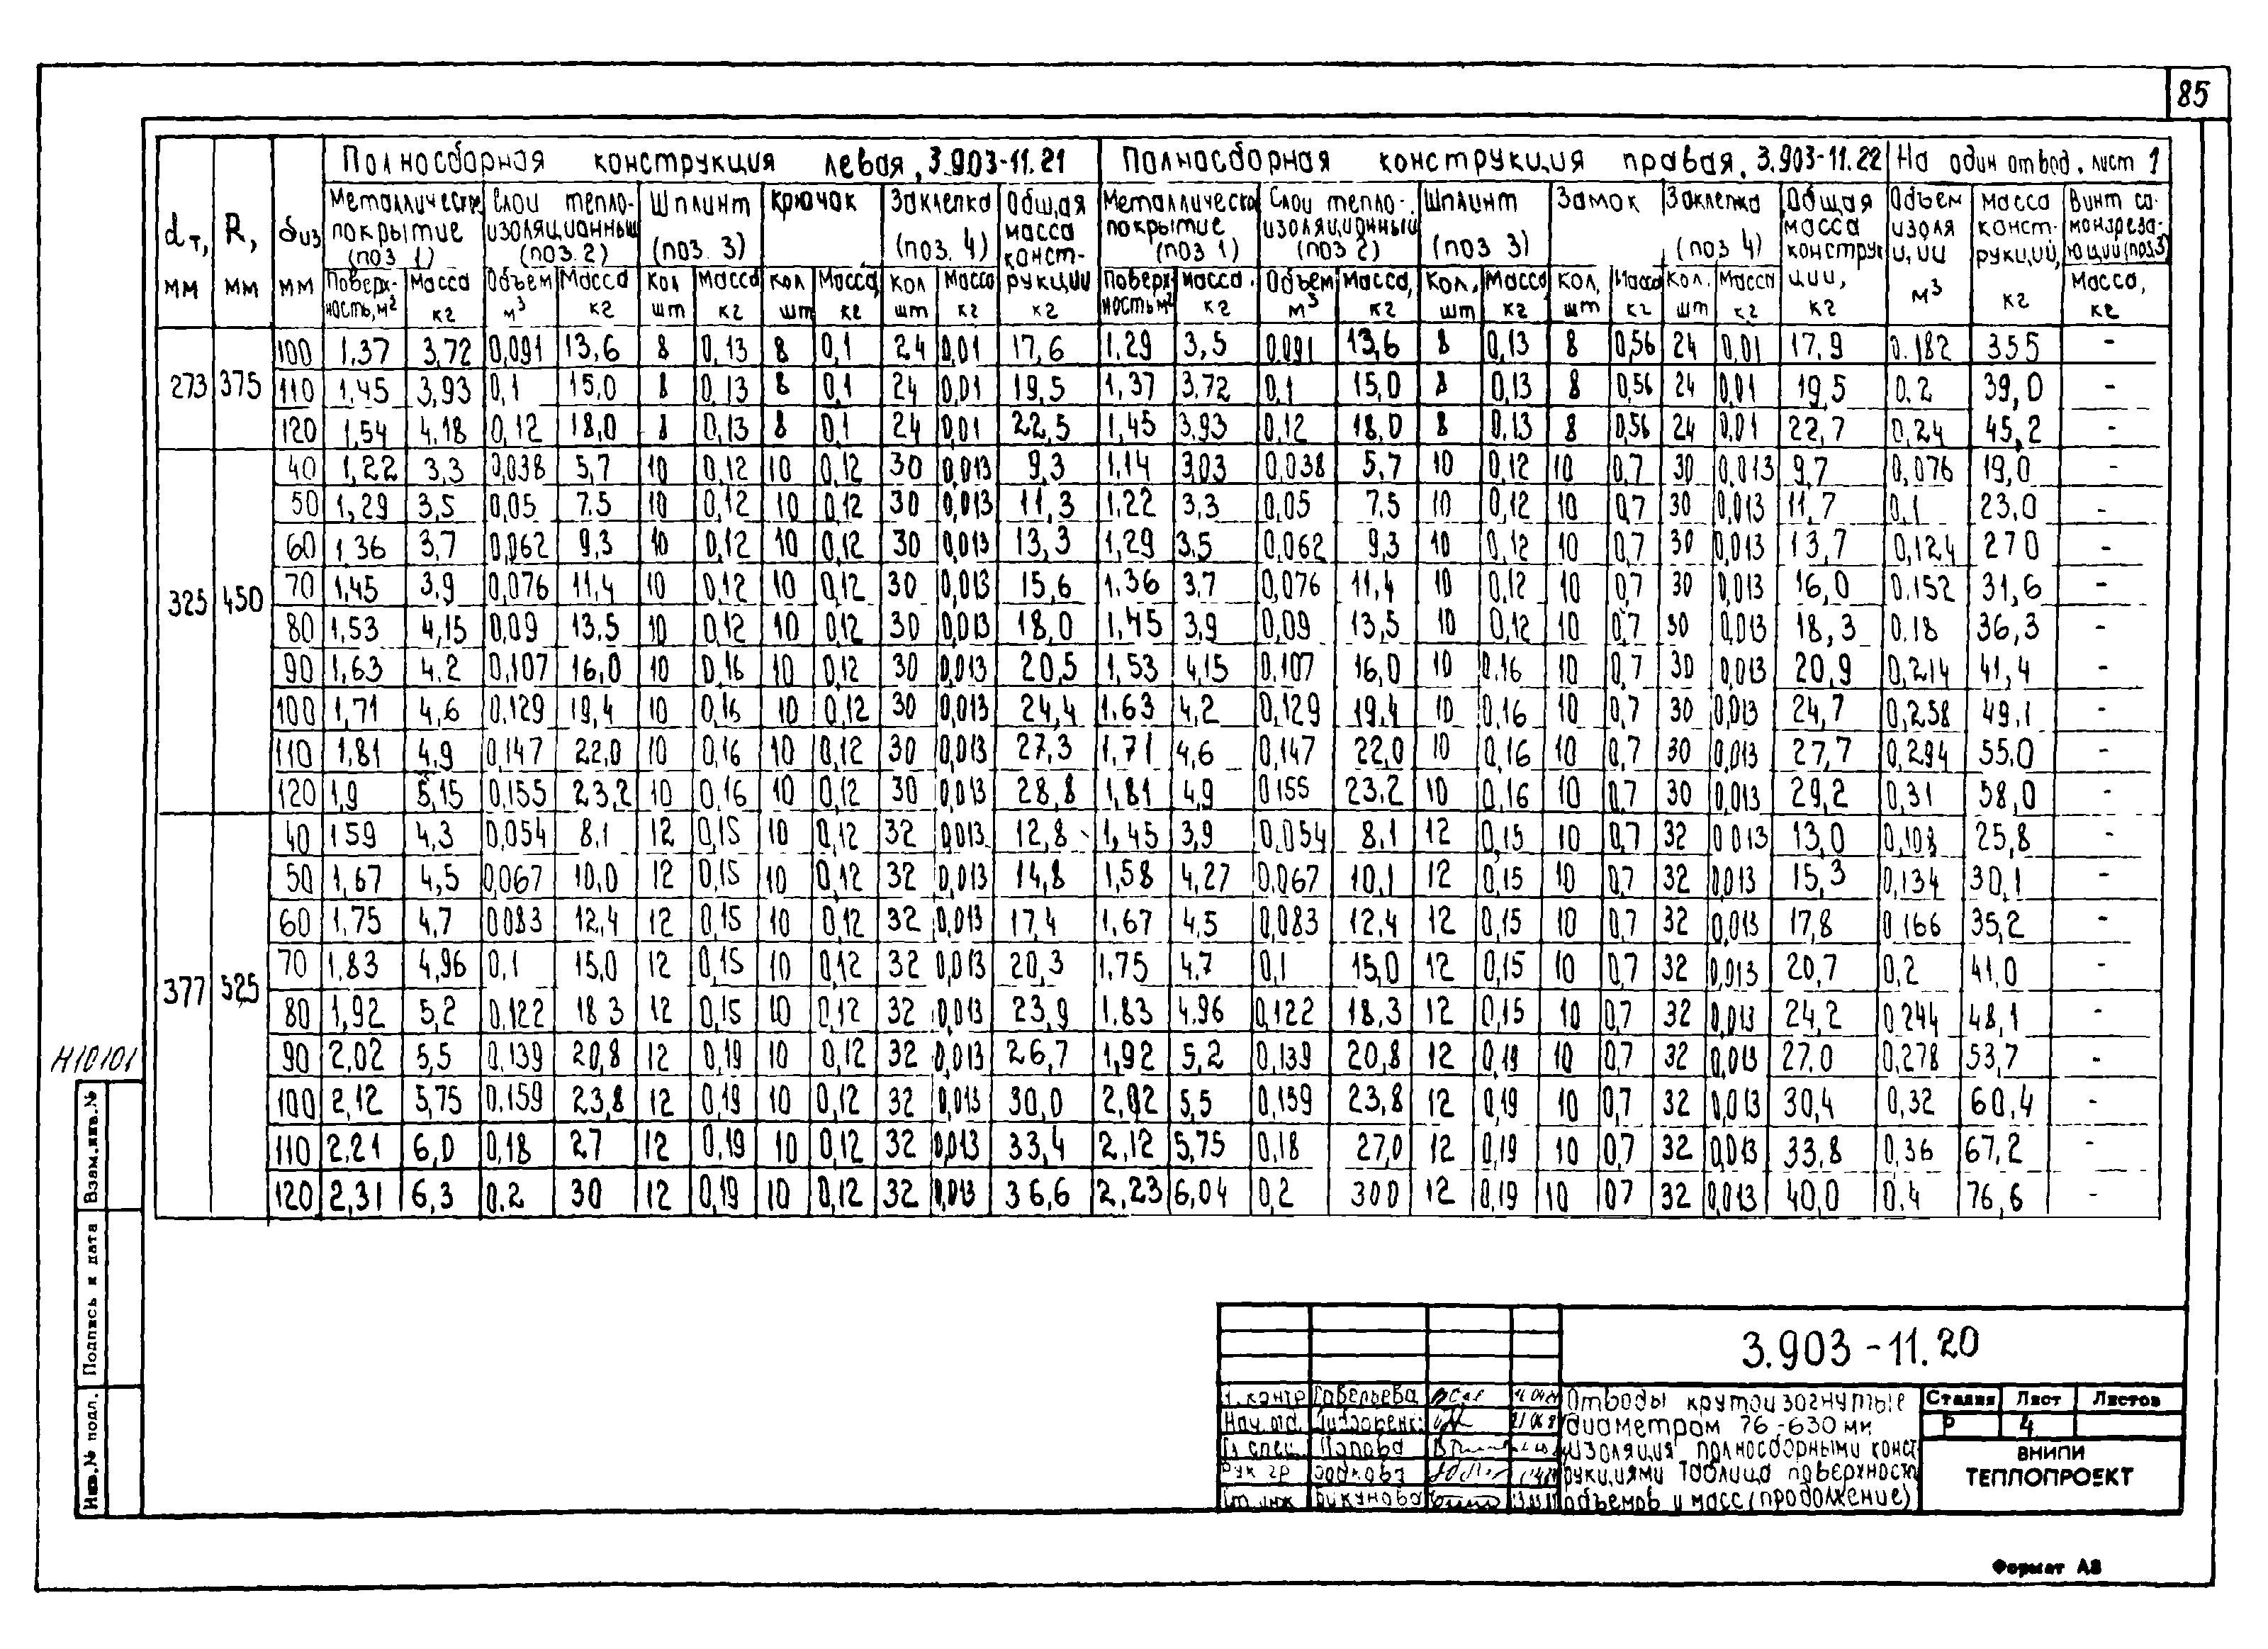 85
Полносборная конструкция левая, 3.903-11.21 Полносборная конструкция правая, 3.903-11.22 На один отвод, лист 1
dт, мм R, мм δиз мм Металлическ покрытие (поз 1) Слои тепло-изоляционный (поз. 2) Шплинт (поз. 3) Крючок Заклепка (поз. 4) Общая масса конст-рукции кг Металлическо покрытие (поз 1) Слои тепло-изоляционный (поз 2) Шплинт (поз 3) Замок Заклепка (поз 4) Общая масса конструк ции, кг Объем изоля ции м³ Масса конст-рукций, кг Винт са-монареза-ющий (поз.3)
Поверх-ность, м² Масса кг Объем м³ Масса кг Кол шт Масса кг Кол шт Масса, кг Кол шт Масса кг Поверх ность м² Масса. кг Объем м³ Масса, кг Кол. шт Масса кг Кол, шт Масса кг Кол. шт Масса кг Масса, кг
273 375
100 1,37 3,72 0,091 13,6 8 0,13 8 0,1 24 0,01 17,6 1,29 3,5 0,091 13,6 8 0,13 8 0,56 24 0,01 17,9 0.182 355 -
110 1,45 3,93 0,1 15,0 8 0,13 8 0,1 24 0,01 19,5 1,37 3,72 0,1 15,0 8 0,13 8 0,56 24 0,01 19,5 0.2 39,0 -
120 1,54 4,18 0,12 18,0 8 0,13 8 0,1 24 0,01 22,5 1,45 3,93 0,12 18,0 8 0,13 8 0,56 24 0,01 22,7 0,24 45,2 -
325 450
40 1,22 3,3 0,038 5,7 10 0,12 10 0,12 30 0,013 9,3 1,14 3,03 0,038 5,7 10 0,12 10 0,7 30 0,013 9,7 0,076 19,0 -
50 1,29 3,5 0,05 7.5 10 0,12 10 0,12 30 0,013 11,3 1,22 3,3 0,05 7.5 10 0,12 10 0,7 30 0,013 11,7 0,1 23,0 -
60 1 36 3,7 0,062 9,3 10 0,12 10 0,12 30 0,013 13,3 1,29 3,5 0,062 9,3 10 0,12 10 0,7 30 0,013 13,7 0,124 270 -
70 1,45 3,9 0,076 11,4 10 0,12 10 0,12 30 0,013 15,6 1,36 3,7 0,076 11,4 10 0,12 10 0,7 30 0,013 16,0 0.152 31,6 -
80 1,53 4,15 0,09 13,5 10 0,12 10 0,12 30 0,013 18,0 1,45 3,9 0,09 13,5 10 0,12 10 0,7 30 0,013 18,3 0.18 36,3 -
90 1,63 4.2 0,107 16,0 10 0,16 10 0,12 30 0,013 20,5 1,53 4,15 0,107 16,0 10 0,16 10 0,7 30 0,013 20,9 0,214 41,4 -
100 1,71 4,6 0,129 19,4 10 0,16 10 0,12 30 0,013 24,4 1.63 4,2 0,129 19,4 10 0,16 10 0,7 30 0,013 24,7 0,258 49.1 -
110 1,81 4,9 0,147 22,0 10 0,16 10 0,12 30 0,013 27,3 1,71 4,6 0,147 22,0 10 0,16 10 0,7 30 0,013 27,7 0,294 55,0 -
120 1,9 5,15 0,155 23,2 10 0,16 10 0,12 30 0,013 28,8 1,81 4,9 0155 23,2 10 0,16 10 0,7 30 0,013 29,2 0,31 58,0 -
377 525
40 159 4,3 0,054 8,1 12 0,15 10 0,12 32 0,013 12,8 1,45 3,9 0.054 8,1 12 0,15 10 0,7 32 0 013 13,0 0,108 25,8 -
50 1,67 4,5 0,067 10,0 12 0,15 10 0,12 32 0,013 14,8 1,58 4,27 0,067 10,1 12 0,15 10 0,7 32 0,013 15,3 0,134 30,1 -
60 1,75 4,7 0083 12,4 12 0,15 10 0,12 32 0,013 17,4 1,67 4,5 0,083 12,4 12 0,15 10 0,7 32 0,013 17,8 0 166 35,2 -
70 1,83 4,96 0,1 15,0 12 0,15 10 0,12 32 0,013 20,3 1,75 4,7 0,1 15,0 12 0,15 10 0,7 32 0,013 20,7 0,2 41,0 -
80 1,92 5,2 0,122 18 3 12 0,15 10 0,12 32 0,013 23,9 1,83 4,96 0,122 18,3 12 0,15 10 0,7 32 0,013 24,2 0.244 48,1 -
90 2,02 5,5 0,139 20,8 12 0,19 10 0,12 32 0,013 26,7 1,92 5,2 0,139 20,8 12 0,19 10 0,7 32 0,013 27.0 0,278 53,7 -
100 2,12 5,75 0,159 23,8 12 0,19 10 0,12 32 0,013 30,0 2,02 5,5 0,159 23,8 12 0,19 10 0,7 32 0,013 30,4 0,32 60,4 -
110 2,21 6,0 0,18 27 12 0,19 10 0,12 32 0,013 33,4 2,12 5,75 0,18 27,0 12 0,19 10 0,7 32 0,013 33,8 0,36 67,2 -
120 2,31 6,3 0.2 30 12 0,19 10 0,12 32 0,013 36,6 2,23 6,04 0,2 300 12 0,19 10 07 32 0,013 40,0 0.4 76,6 -
Н10101
Взам.инв.№
Подпись и дата
Инв.№ подл.
3.903-11.20
Нач. отд.
Гл спец. Попова
Рук гр
Ст. инж
Отводы крутоизогнутые
диаметром 76-630 мм
изоляция полносборными конст
рукциями Таблица поверхност
объемов и масс (продолжение)
Стадия Лист Листов
Р 4
ВНИПИ
ТЕПЛОПРОЕКТ
Формат А3